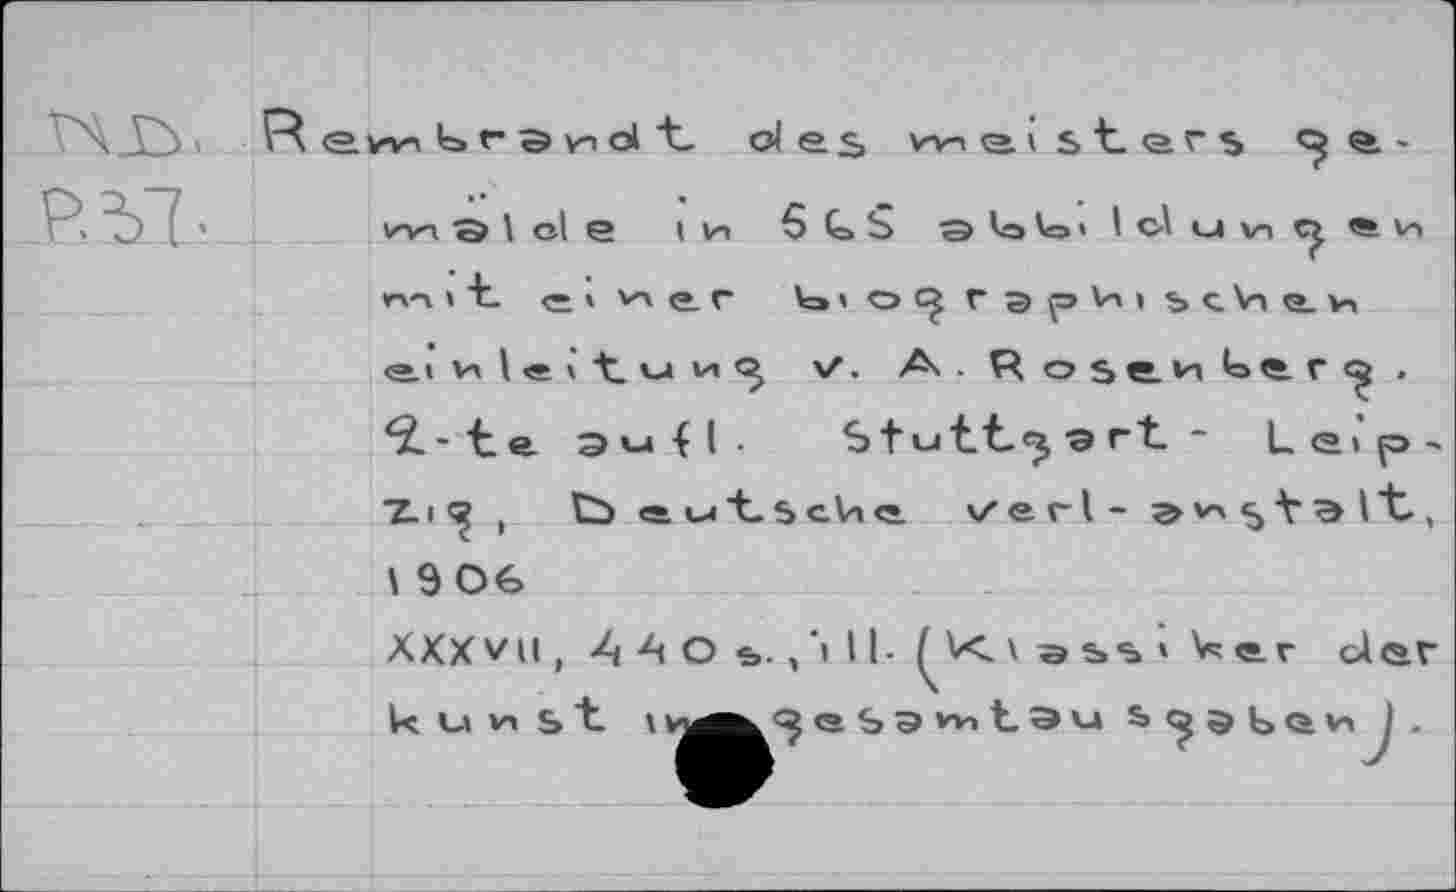 ND. Rembrandt des meisters ge-
P.37. mälde in 565 abbildungen
mit einer biographischen
einleitung v. A. Rosenberg.
2-te aufl. Stuttgart - Leip-
zig, Deutsche verl-anstalt,
1906
XXXVII, 440 s., ill. (Klassiker der
kunst in gesamtausgaben).